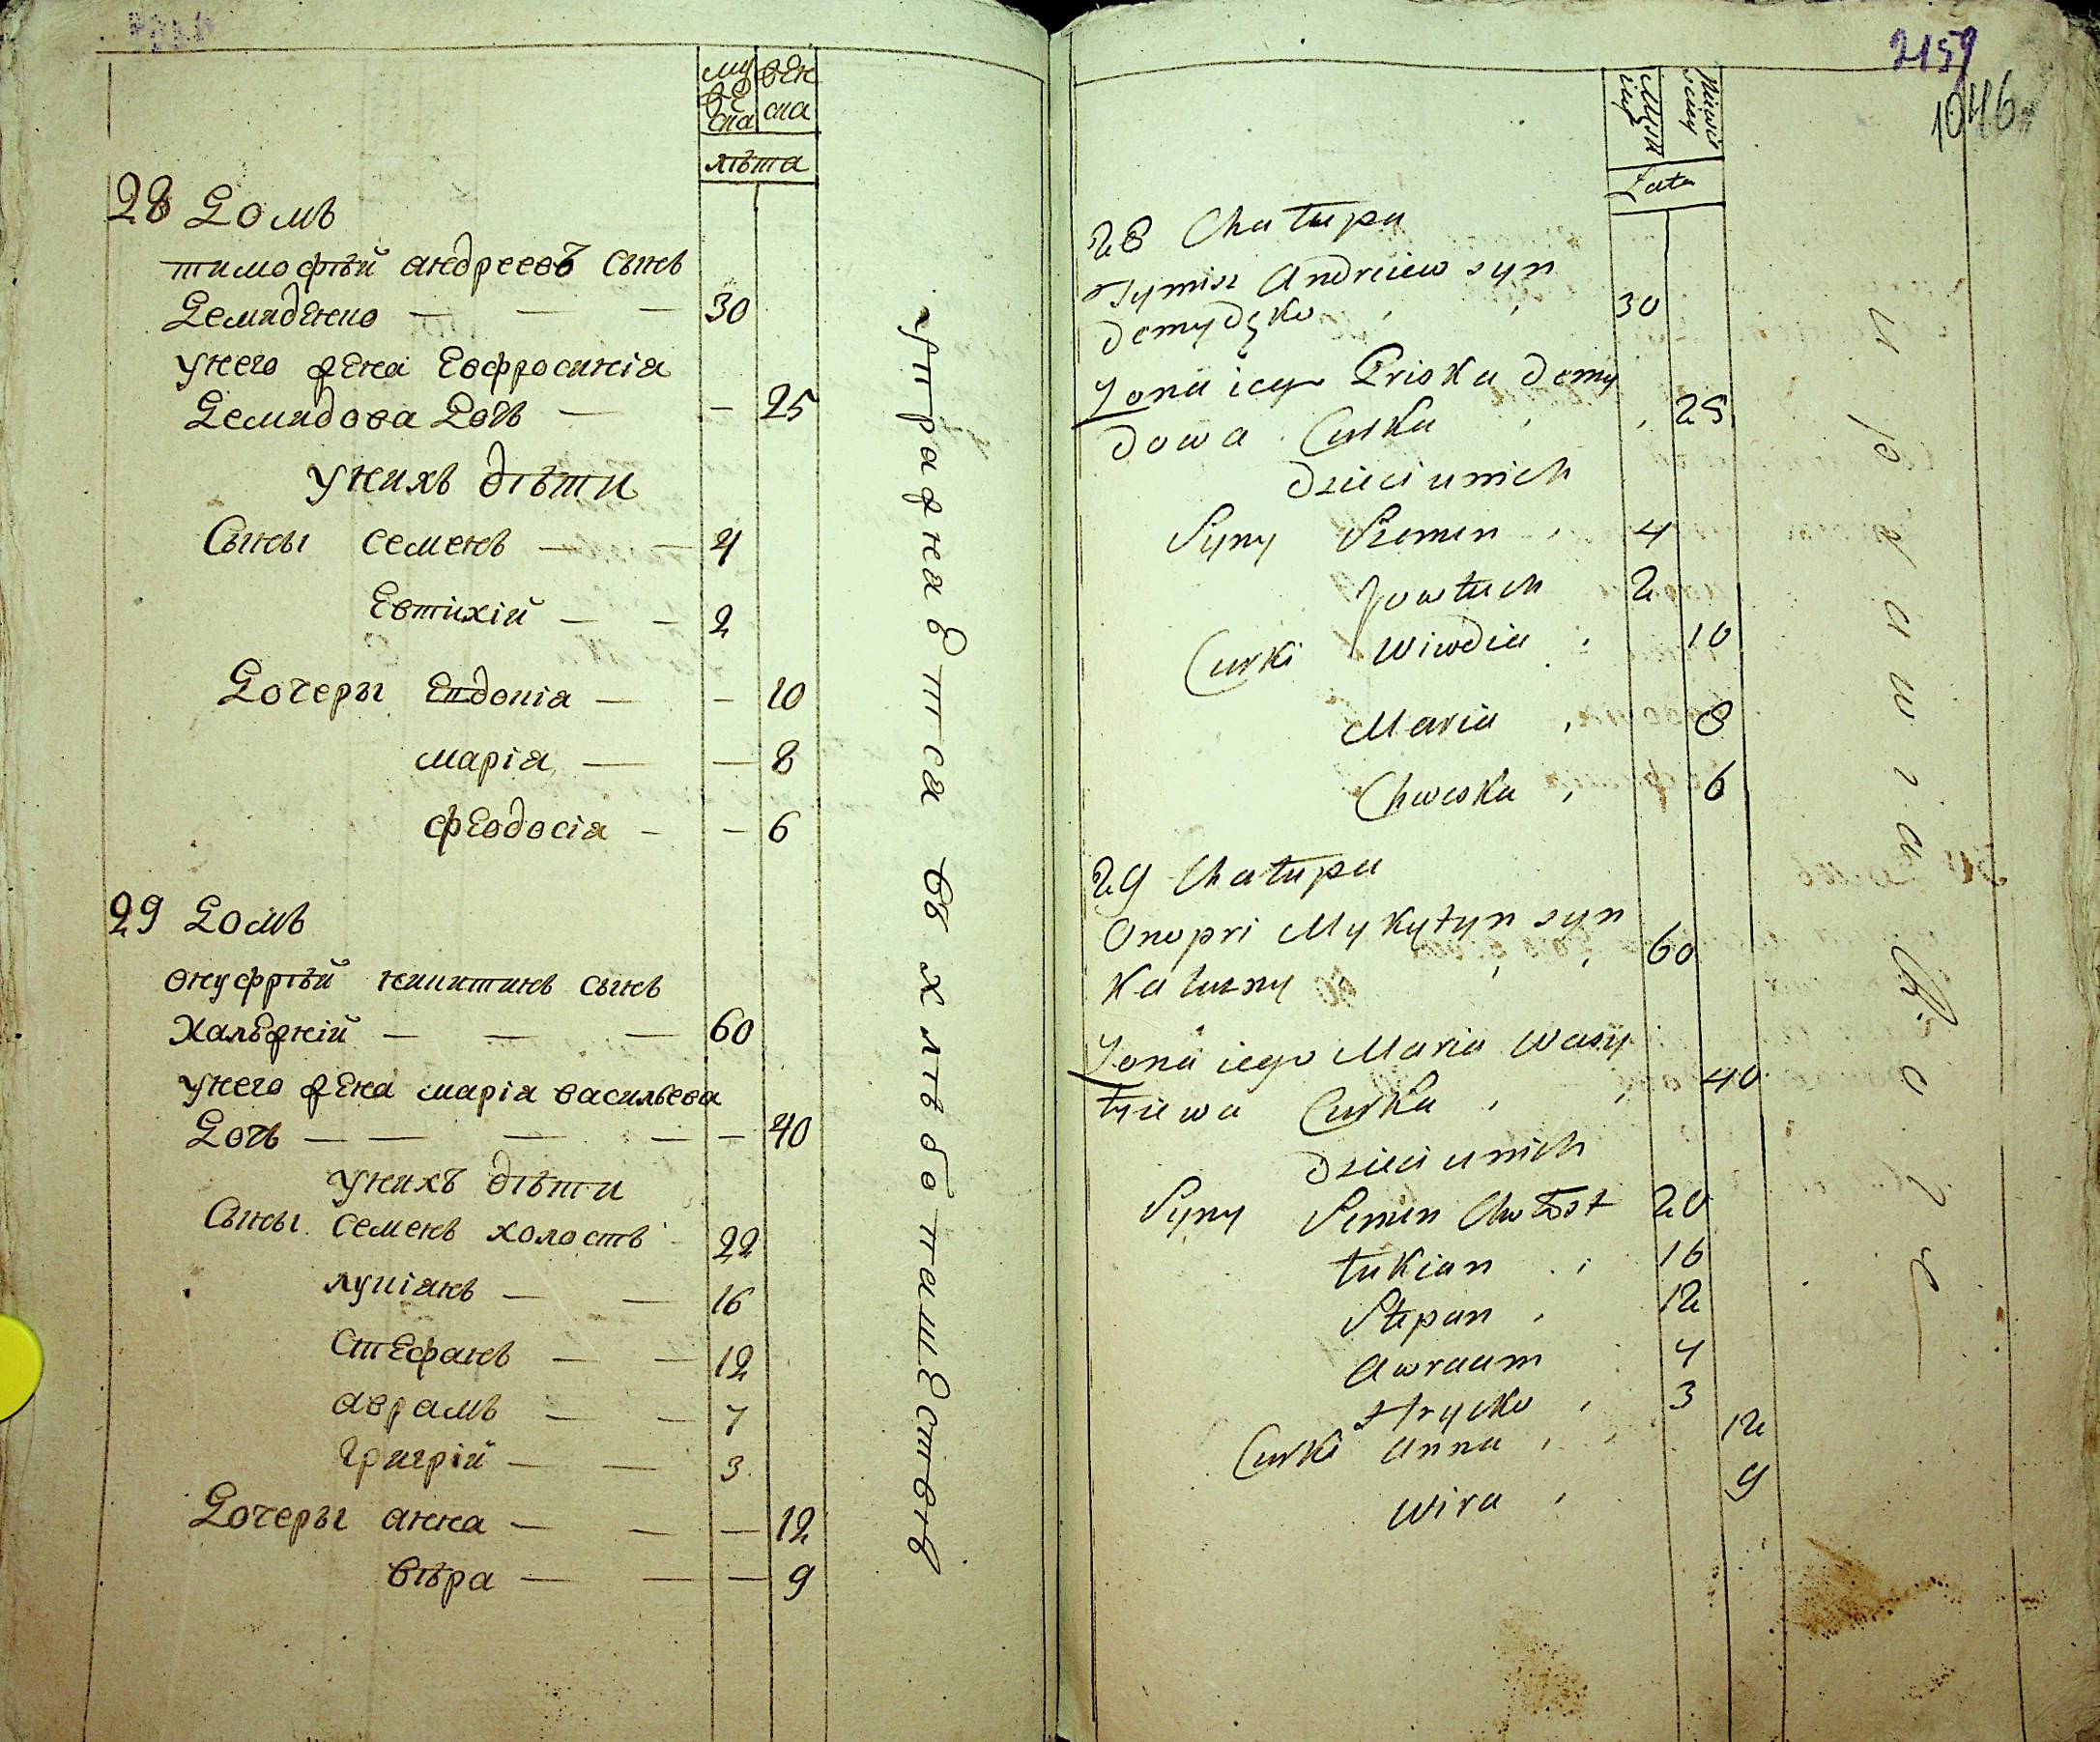 муже ска
жен ска
лѣта
28 Домъ
тимофѣй андреевъ сынъ
Демиденко — — — 30
унего жена Евфросинія
Демидова Дочь — — 25
унихъ дѣти
Сыны семенъ — — 4
Евтихій — — 2
Дочеры Евдокія — — 10
марія — — 8
феодосіа — — 6
29 Домъ
онуфрѣй никитинъ сынъ
Хальѣжній — — — 60
унего жена марія васильева
Дочь — — — — — 40
унихъ дѣти
Сыны семенъ холостъ 22
лукіанъ — — 16
Стефанъ — — 12
аврамъ — — 7
григрій — — 3
Дочеры анна — — — 12
вѣра — — — 9
упражнаетса въ хлѣбопашествѣ
2159
1046
Lata
28 Chałupa
Tymisz Andreiew syn
Demydzko 30
Zona iego Priska Demy
dowa Curka 25
Dzieci unich
Syny Szemen 4
Jowtuch 2
Curki Wiwdia 10
Maria 8
Chweska 6
29 Chałupa
Onopri Mykytyn syn
Kałuzny 60
Zona iego Maria Wasy
łyiewa Curka 40
Dzieci unich
Syny Semen Chołost 20
Łukian 16
Stepan 12
Awraam 4
Hrycko 3
Curki Anna 12
Wira 9